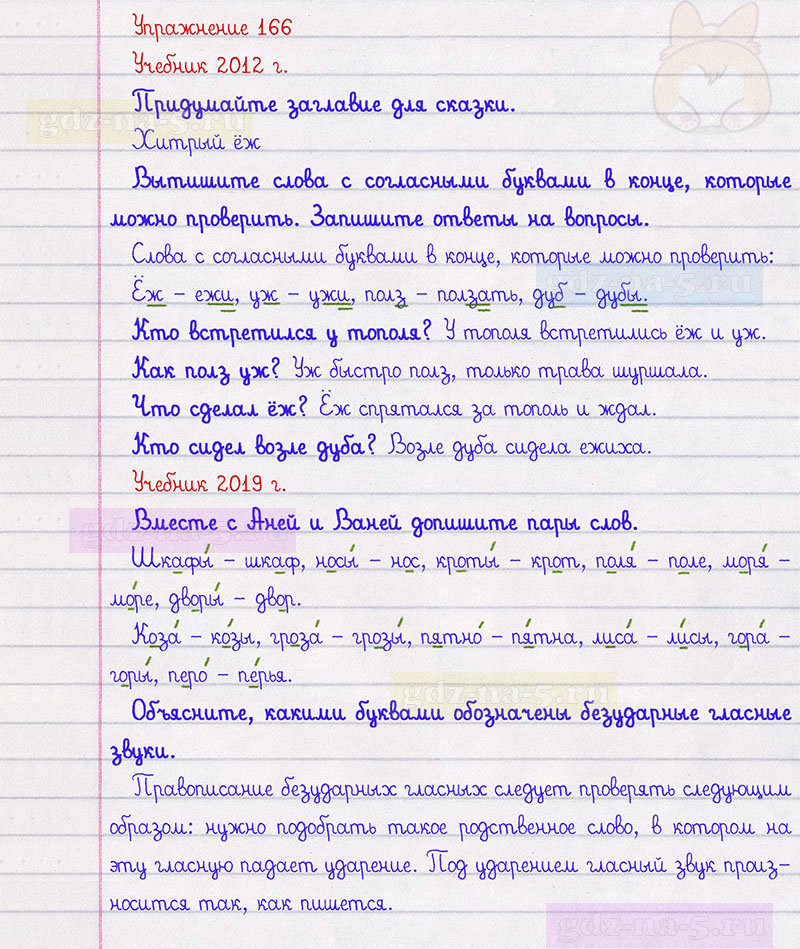 Упражнение 166
Учебник 2012 г.
Придумайте заглавие для сказки.
gdz-na-5.ru
Хитрый ёж
Вытишите слова с согласными буквами в конце, которые
можно проверить. Запишите ответы на вопросы.
Слова с согласными буквами в конце, которые можно проверить:
gdz-na-5.ru
Ёж – ежи, уж – ужи, полз – ползать, дуб – дубы.
Кто встретился у тополя? У тополя встретились ёж и уж.
Как полз уж? Уж быстро полз, только трава шуршала.
Что сделал ёж? Ёж спрятался за тополь и ждал.
Кто сидел возле дуба? Возле дуба сидела ежиха.
Учебник 2019 г.
Вместе с Аней и Ваней допишите пары слов.
gdz-na-5.ru
Шкафы́ – шкаф, носы́ – нос, кроты́ – крот, поля́ – поле, моря́ –
мо́ре, дворы́ – двор.
Коза́ – ко́зы, гроза́ – грозы́, пятно́ – пя́тна, лиса́ – ли́сы, гора́ –
го́ры, перо́ – пе́рья.
gdz-na-5.ru
Объясните, какими буквами обозначены безударные гласные
звуки.
Правописание безударных гласных следует проверять следующим
образом: нужно подобрать такое родственное слово, в котором на
эту гласную падает ударение. Под ударением гласный звук произ-
носится так, как пишется.
gdz-na-5.ru